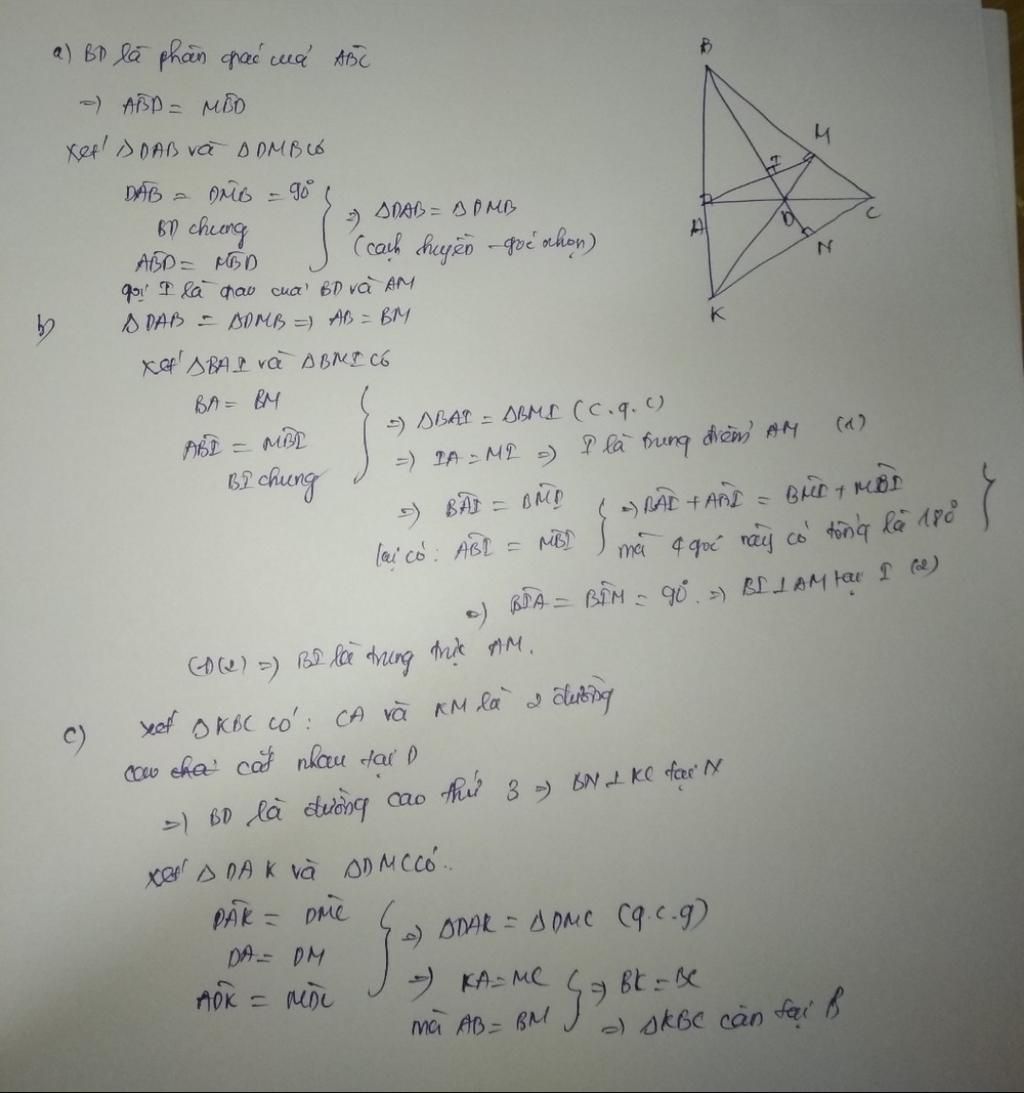 a) BD là phân giác của ABĈ
=> ABD̂ = MBD̂
Xét ΔDAB và ΔDMB có
DÂB = DM̂B = 90°
BD chung
AB̂D = MB̂D
=> ΔDAB = ΔDMB
(cạnh huyền - góc nhọn)
gọi I là giao của BD và AM
b) ΔDAB = ΔDMB => AB = BM
Xét ΔBAI và ΔBMI có
BA = BM
AB̂I = MB̂I
BI chung
=> ΔBAI = ΔBMI (c.g.c)
=> IA = MI => I là trung điểm AM (1)
=> BÂI = BM̂I
lại có: AB̂I = MB̂I
=> BÂI + AB̂I = BM̂I + MB̂I
mà 4 góc này có tổng là 180°
=> BÎA = BÎM = 90° => BI ⊥ AM tại I (2)
(1)(2) => BI là trung trực AM.
c) xét ΔKBC có: CA và KM là 2 đường
cao cắt nhau tại D
=> BD là đường cao thứ 3 => BN ⊥ KC tại N
xét ΔDAK và ΔDMC có..
DÂK = DM̂C
DA = DM
AD̂K = MD̂C
=> ΔDAK = ΔDMC (g.c.g)
=> KA = MC
mà AB = BM
=> BK = BC
=> ΔKBC cân tại B
B
M
I
A
D
C
N
K